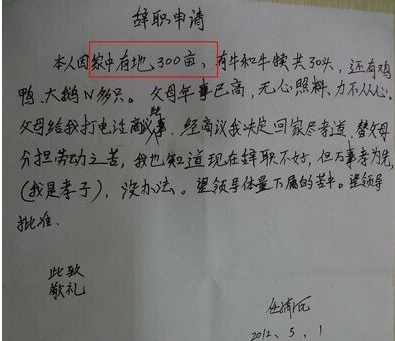 辞职申请
本人因家中有地300亩，有牛和牛犊共30头，还有鸡
鸭、大鹅N多只。父母年事已高，无心照料、力不从心。
父母给我打电话商议此事，经商议我决定回家尽孝道，替父母
分担劳动之苦，我也知道现在辞职不好，但万事孝为先，
(我是孝子)，没办法。望领导体量下属的苦中。望领导
批准.
此致
敬礼
2012、5、1